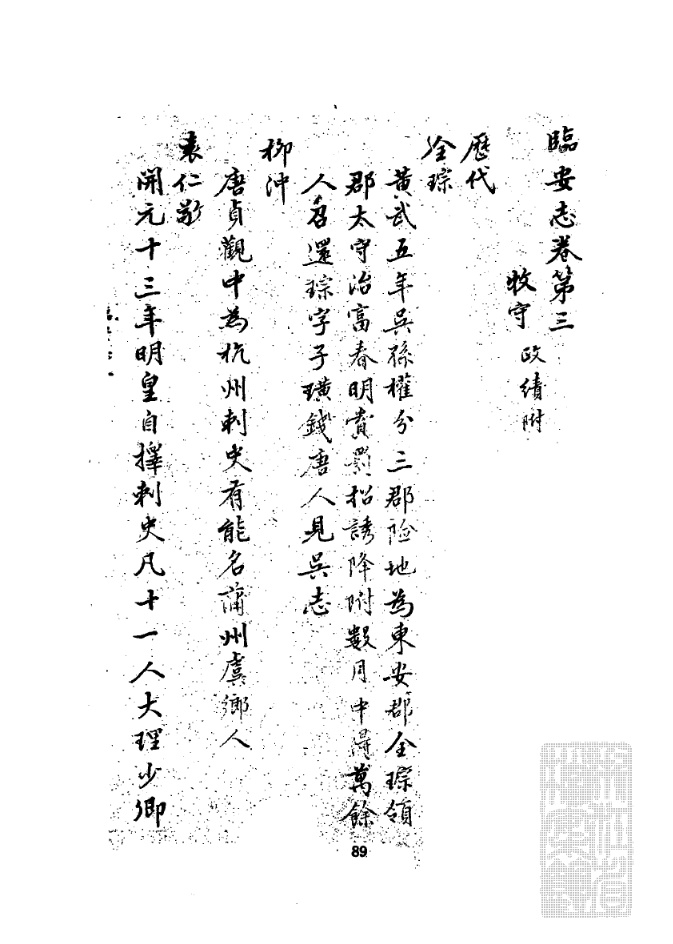 臨安志卷第三
牧守 政績附
歷代
全琮
黃武五年吳孫權分三郡險地為東安郡全琮領
郡太守治富春明賞罰招誘降附數月中得萬餘
人召還琮字子璜錢唐人見吳志
柳沖
唐貞觀中為杭州刺史有能名蒲州虞鄉人
袁仁敬
開元十三年明皇自擇刺史凡十一人大理少卿
89